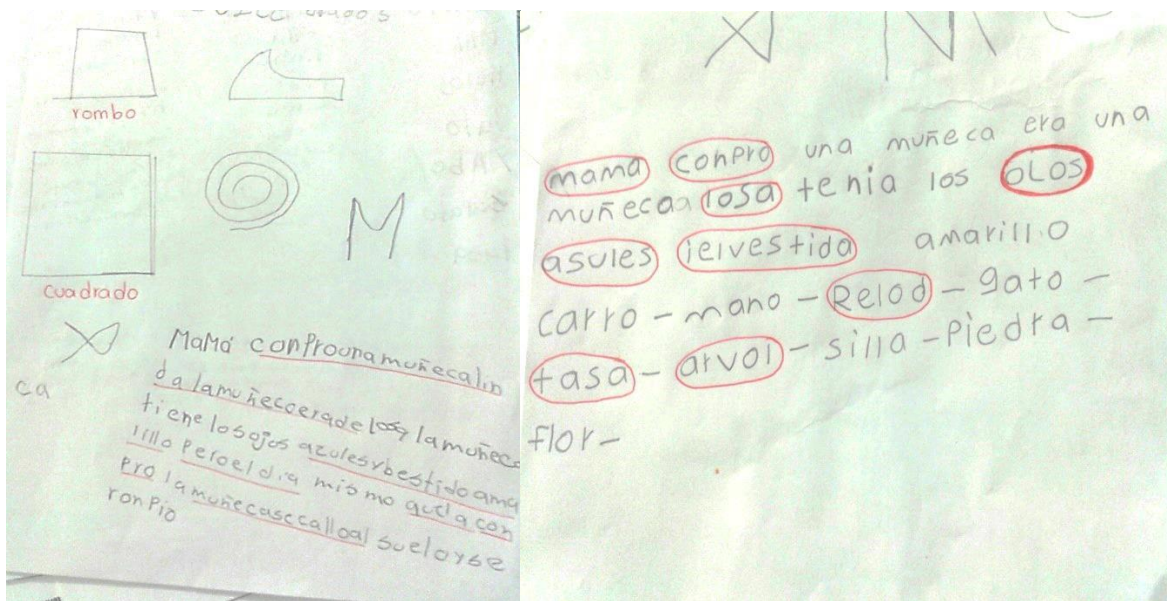 rombo
cuadrado
M
ca
MaMá conProunamuñecalin
da lamuñecaerade losa lamuñeca
tiene losojos azulesybestidoama
rillo Peroeldia mismo quela con
Pro lamuñecasecalloal sueloyse
ronPio
mamá conPro una muñeca era una
muñecaa losa tenia los oLos
asules ielvestido amarillo
carro - mano - Relod - gato -
tasa - arvol - silla - Piedra -
flor -